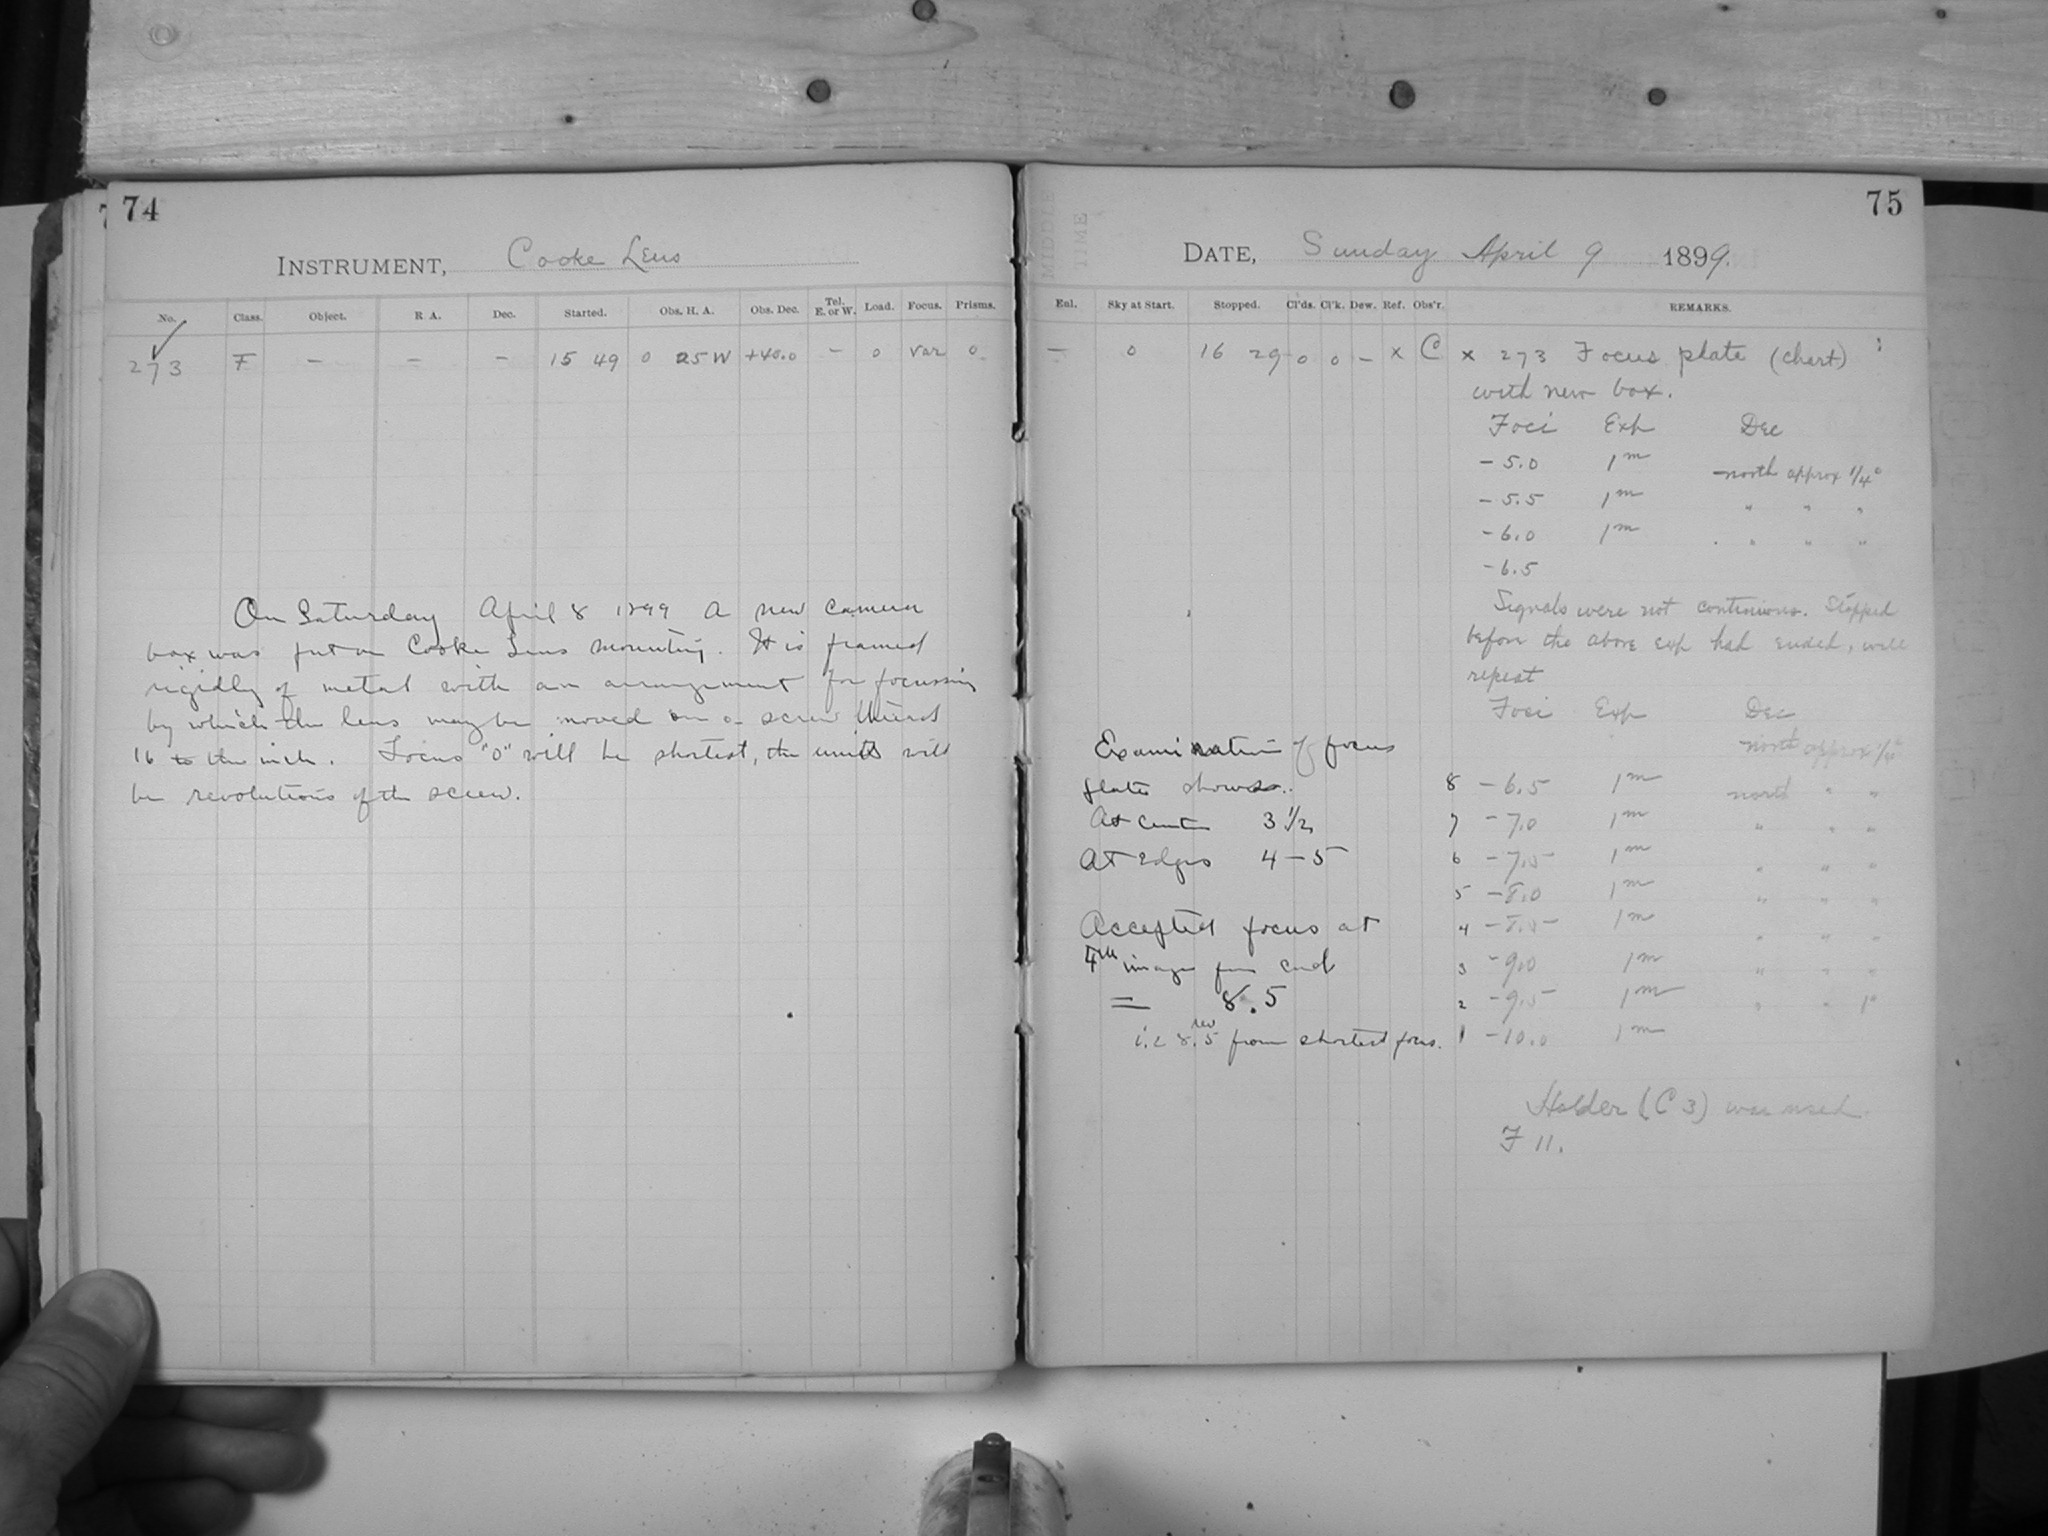 74
INSTRUMENT, Cooke Lens
No. Class. Object. R A. Dec. Started. Obs. H. A. Obs. Dec. Tel. E. or W. Load. Focus. Prisms.
273 F — — — 15 49 0 25 W +40.0 — 0 var 0
On Saturday April 8 1899 A new camera
box was put on Cooke Lens mounting. It is framed
rigidly of metal with an arrangement for focussing
by which the lens may be moved on a screw thread
16 to the inch. Focus "0" will be shortest, the units will
be revolutions of the screw.
75
MIDDLE
TIME
DATE, Sunday April 9 1899.
Enl. Sky at Start. Stopped. Cl'ds. Cl'k. Dew. Ref. Obs'r. REMARKS.
— 0 16 29 0 0 — x C x 273 Focus plate (chart)
with new box.
Foci Exp Dec
- 5.0 1m north approx 1/4°
- 5.5 1m " " "
- 6.0 1m " " "
- 6.5
Signals were not continuous. Stopped
before the above exp had ended, will
repeat
Foci Exp Dec
north approx 1/4°
8 - 6.5 1m north " "
7 - 7.0 1m " " "
6 - 7.5 1m " " "
5 - 8.0 1m " " "
4 - 8.5 1m " " "
3 - 9.0 1m " " "
2 - 9.5 1m " " 1°
1 - 10.0 1m
Holder (C 3) was used
F 11.
Examination of focus
plate shows..
At center 3 1/2
At edges 4 — 5
Accepted focus at
4th image from end
= 8.5
i.e 8.5 rev from shortest focus.